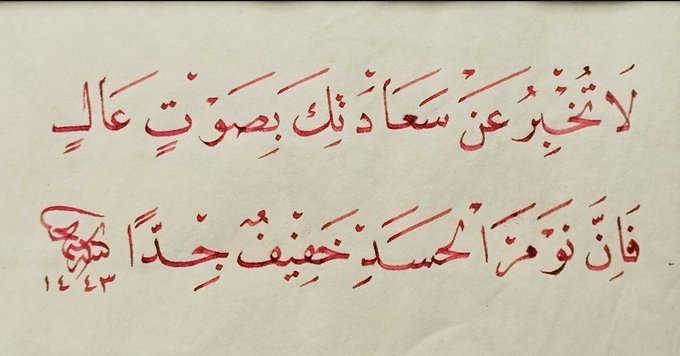 لَا تُخْبِرُ عَنْ سَعَادَتِكَ بِصَوْتٍ عَالٍ
فَاِنَّ نَوْمَ الْحَسَدِ خَفِيْفٌ جِدًّا
١٤٤٣